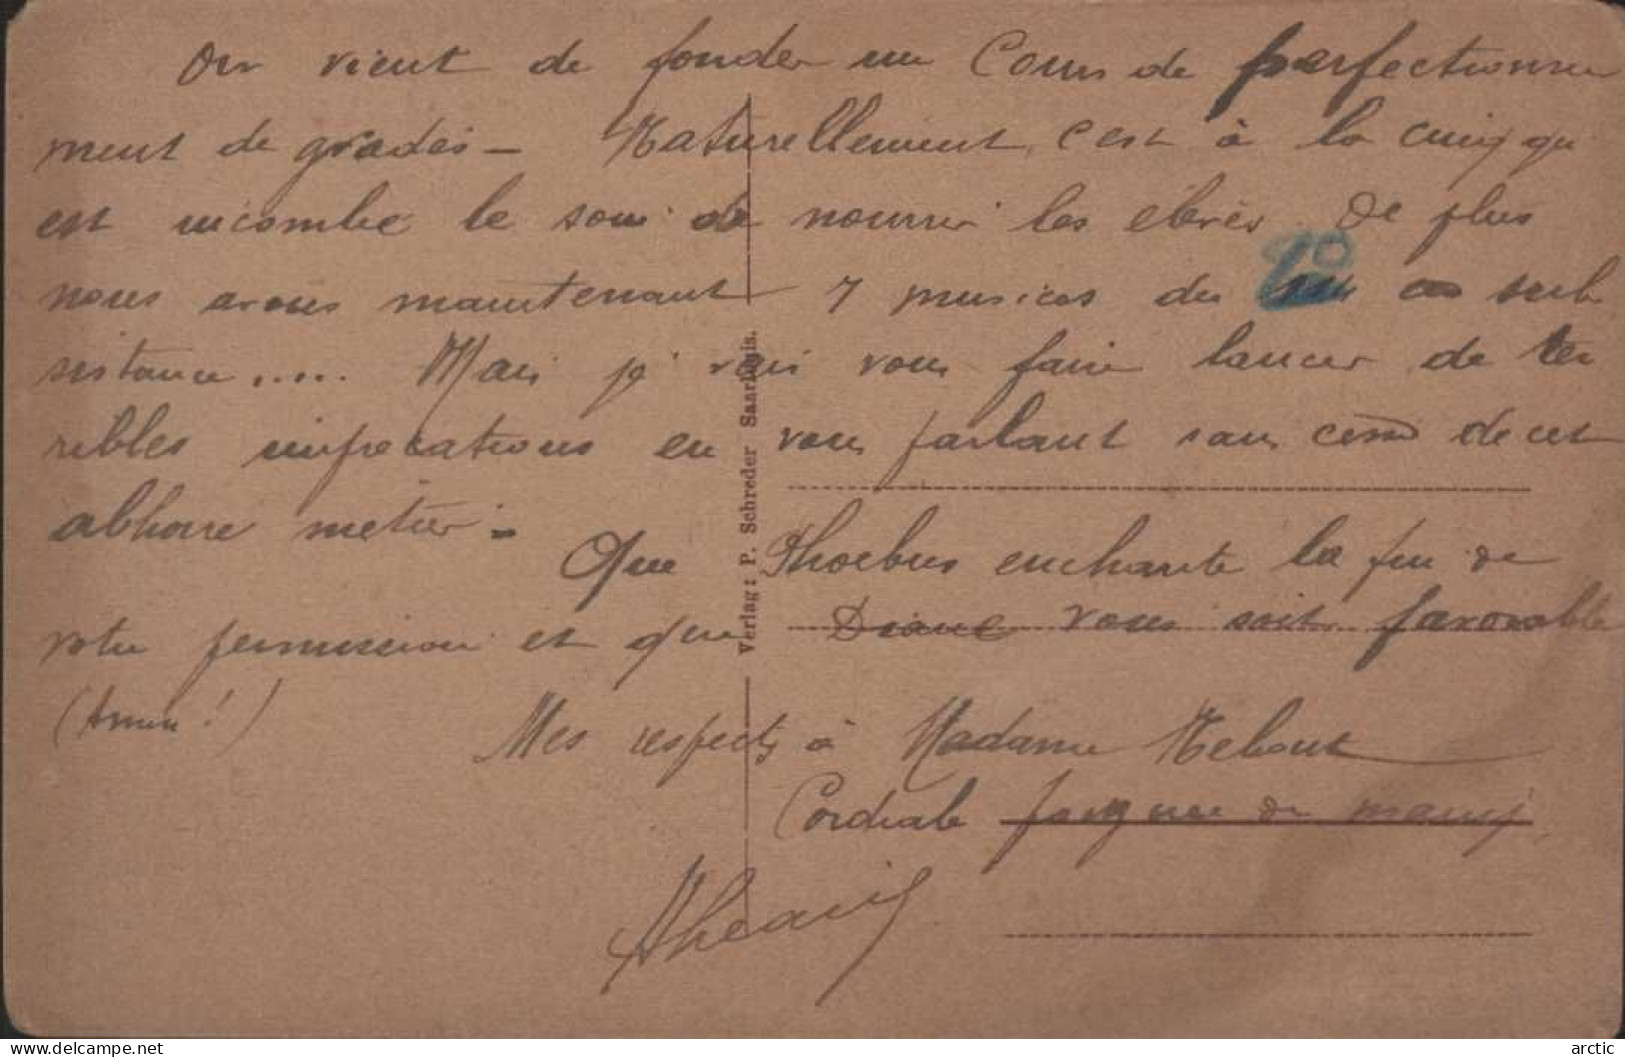 On vient de fonder un Cours de perfectionne
ment de gradés – Naturellement, c'est à la cuiq qu'
est incombé le soin de nourrir les élèves. De plus
nous avons maintenant 7 musicos du en sub
sistance..... Mais je vais vous faire lancer de ter
ribles imprécations en vous parlant sans cesse de cet
abhorré métier –
Que Phoebus enchante la fin de
votre permission et que Diane vous soit favorable
(Amen!)
Mes respects à Madame
Cordiale poignée de main
20
Verlag: P. Schreder Saarlouis.
www.delcampe.net
arctic